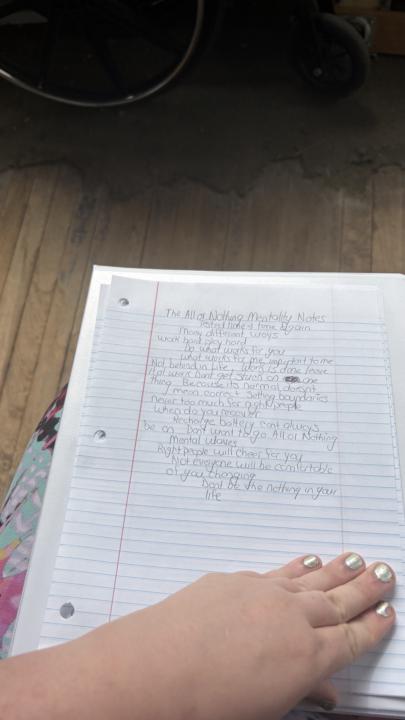 The All or Nothing Mentality Notes
Tested time & time again
Many different ways
work hard play hard
Do what works for you
what works for me important to me
Not behind in life, Work is done leave
at work Dont get stuck on one
thing. Because its normal doesnt
mean correct Setting boundaries
never too much for right people
When do you recover
Recharge battery cant always
be on. Dont want to go All or Nothing
Mental waves
Right people will cheer for you
Not everyone will be comfortable
of you changing
Dont be the nothing in your
life